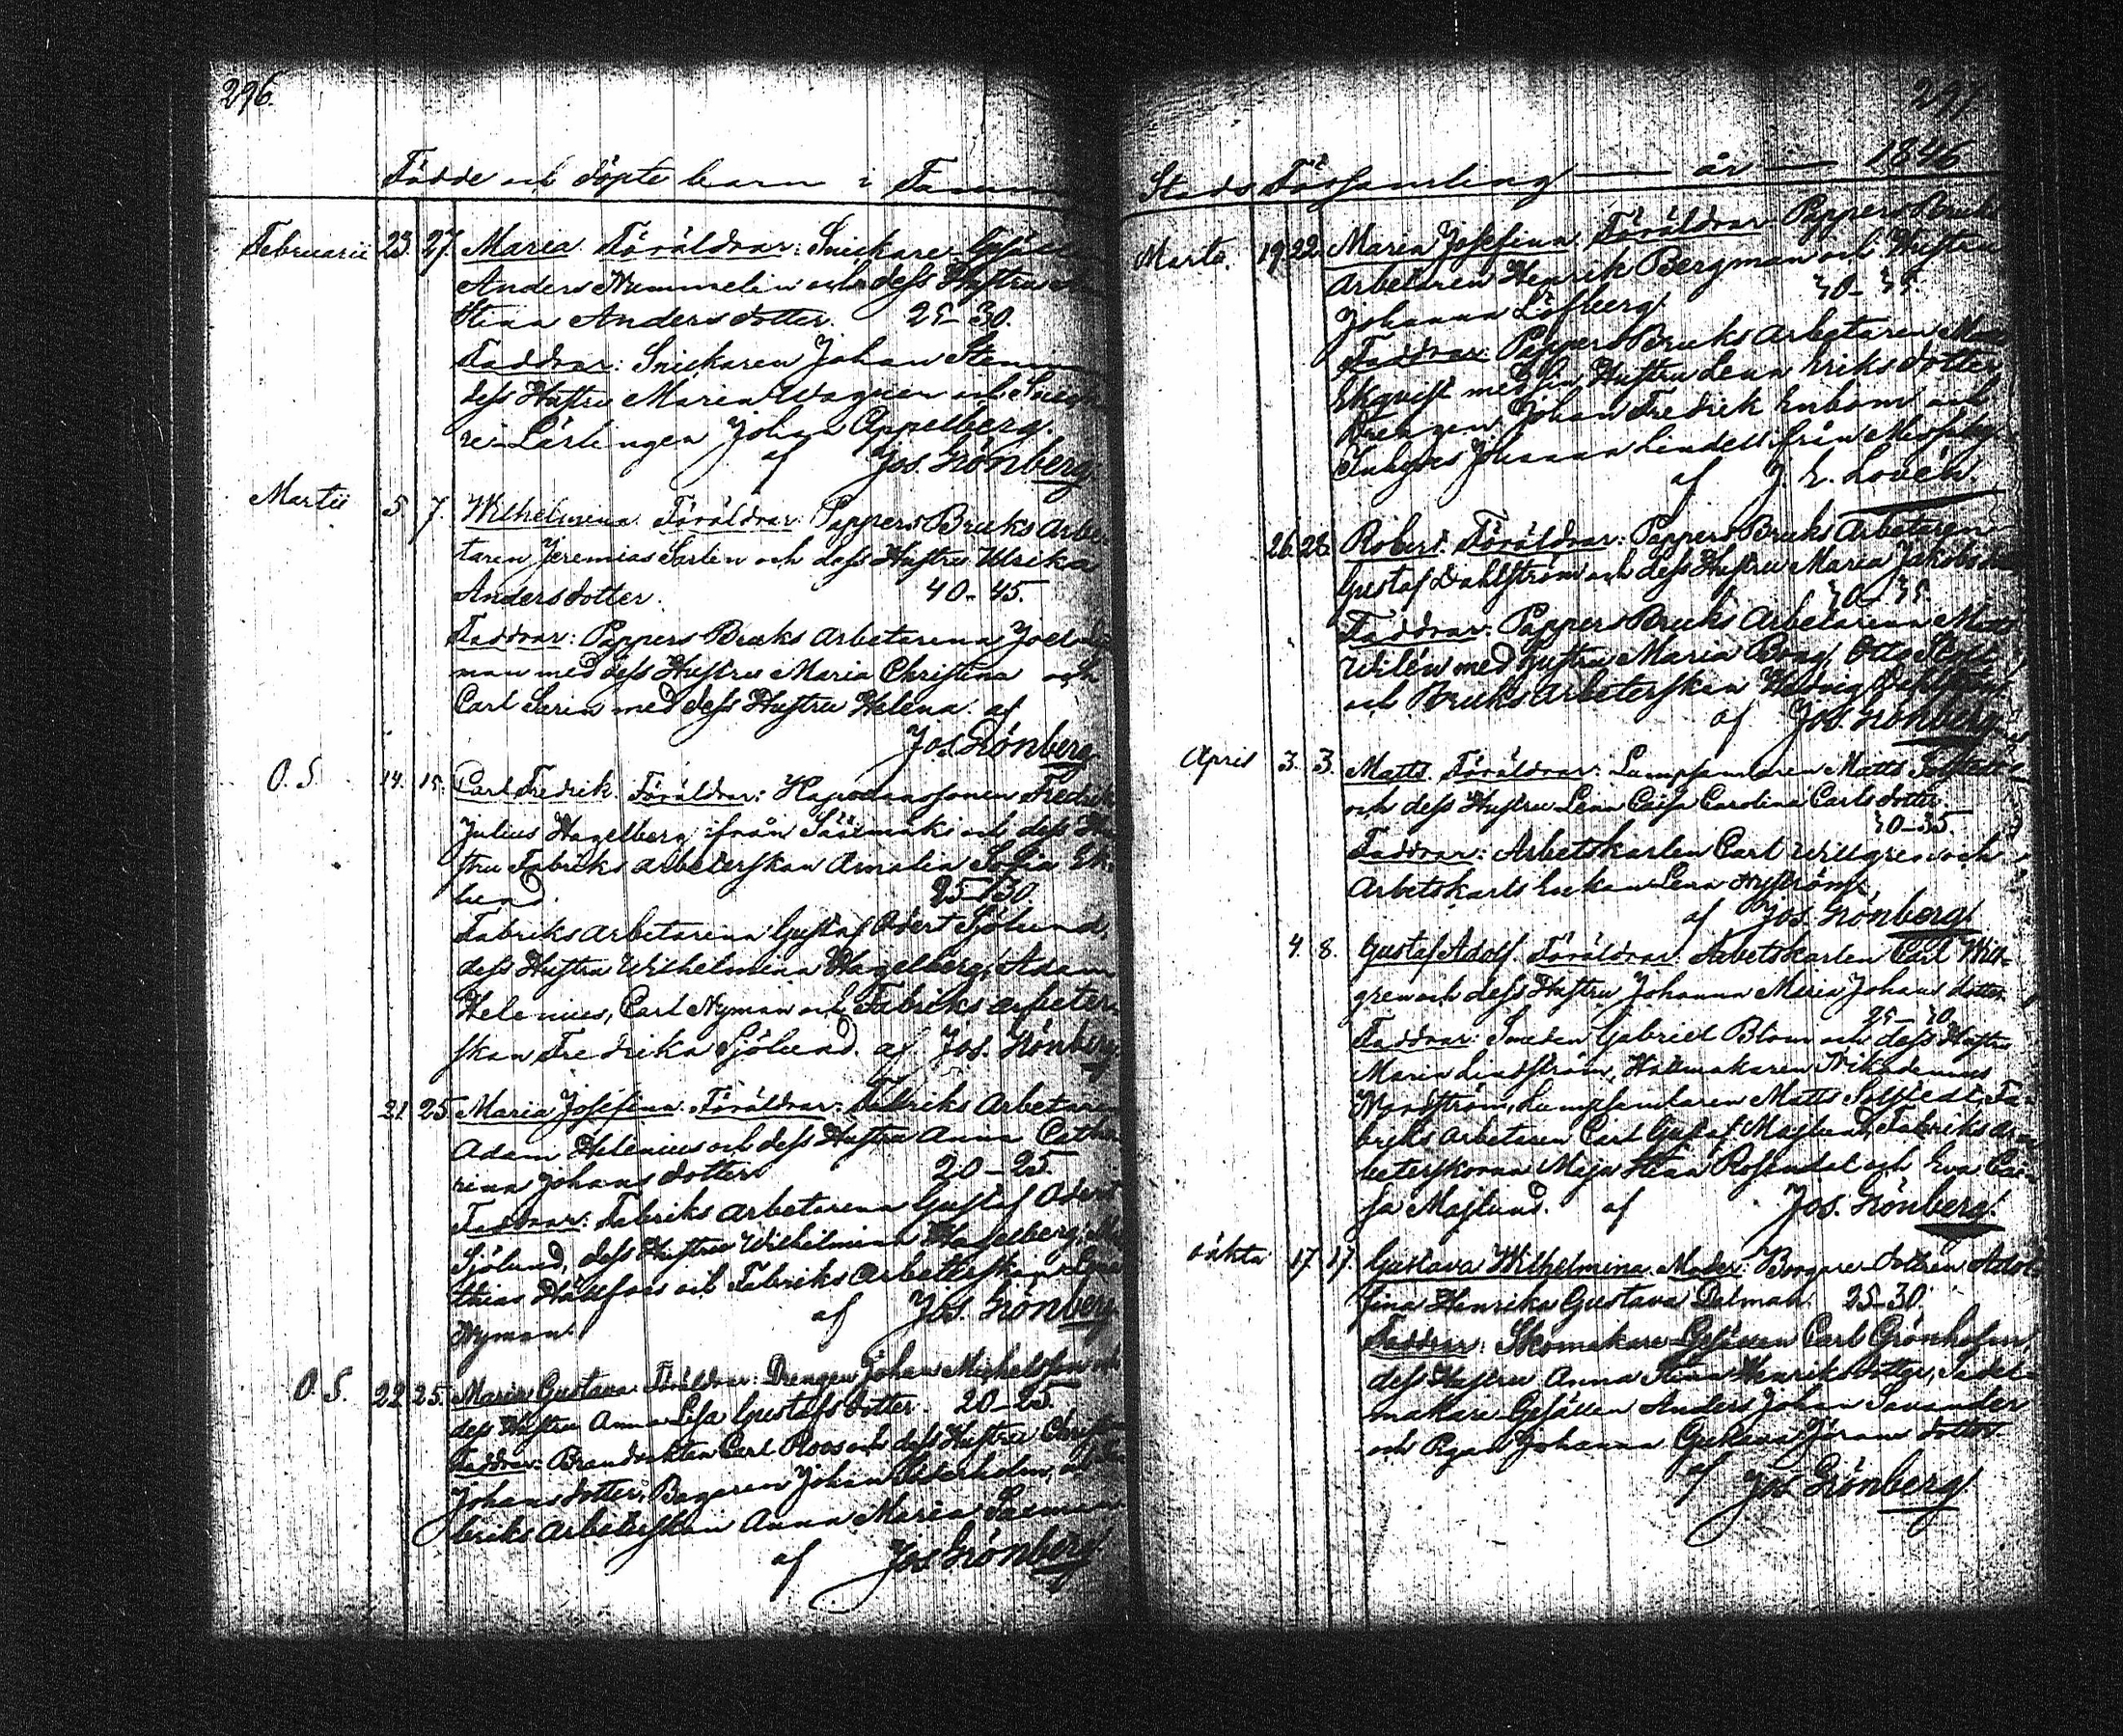 296.
Födde och döpte barn i Tamm
Februarii 23. 27. Maria. Föräldrar: Snickare Gesällen
Anders Nummelin och dess Hustru
Stina Andersdotter. 25-30.
Faddrar: Snickaren Johan
dess Hustru Maria Wagner och
re-Lärlingen Johan Appelberg.
af Jos. Grönberg.
Martii 5. 7. Wilhelmina. Föräldrar: Pappers Bruks Arbe-
taren Jeremias Sarlin och dess Hustru Ulrika
Andersdotter. 40-45.
Faddrar: Pappers Bruks Arbetarena Joel
man med dess Hustru Maria Christina och
Carl med dess Hustru Helena. af
Jos. Grönberg
O. S. 14. 15. Carl Fredrik. Föräldrar: Fredrik
Julius Hagelberg ifrån Sääxmäki och dess Hu-
stru Fabriks arbeterskan Amalia Sofia Ek-
lund. 25-30.
Fabriks arbetarena Gustaf Odert Sjölund,
dess Hustru Wilhelmina Hagelberg, Adam
Helenius, Carl Nyman och Fabriks arbeter-
skan Fredrika Sjölund. af Jos. Grönberg
21. 25. Maria Josefina. Föräldrar: Fabriks Arbetaren
Adam Helenius och dess Hustru Anna Catha-
rina Johansdotter 20-25.
Faddrar: Fabriks arbetarena Gustaf Odert
Sjölund, dess Hustru Wilhelmina Hagelberg,
thias och Fabriks Arbeterskan
Nyman. af Jos. Grönberg
O. S. 22. 25. Maria Gustava. Föräldrar: Drengen Johan Michelsson och
dess Hustru Anna Lisa Gustafsdotter. 20-25.
Faddrar: Brandvakten Carl Roos och dess Hustru
Johansdotter, Bagaren Johan
briks Arbeterskan Anna Maria
af Jos. Grönberg
297
Stads Församling — år — 1846
Martii. 19. 22. Maria Josefina. Föräldrar: Pappers Bruks
arbetaren Henrik Bergman och Hustru
Johanna Löfberg. 30-35.
Faddrar: Pappers Bruks Arbetaren
Ekqvist med sin Hustru Lena Eriksdotter
Drengen Johan Fredrik Enbom och
Johanna Lindell från
af J. E. Lovén.
26. 28. Robert. Föräldrar: Pappers Bruks Arbetaren
Gustaf Dahlström och dess Hustru Maria Jakobsdotter
30-35.
Faddrar: Pappers Bruks Arbetarena Matts
Wilén med Hustru Maria Otto
och Bruks Arbeterskan Hedvig Dahlström.
af Jos. Grönberg
April 3. 3. Matts. Föräldrar: Lumpsamlaren Matts
och dess Hustru Lena Caisa Carolina Carlsdotter.
30-35.
Faddrar: Arbetskarlen Carl Willgren och
Arbetskarls Enkan Lena Nyström,
af Jos. Grönberg
4. 8. Gustaf Adolf. Föräldrar: Arbetskarlen Carl Will-
gren och dess Hustru Johanna Maria Johansdotter
25-30.
Faddrar: Smeden Gabriel Blom och dess Hustru
Maria Lindström, Hattmakaren Nikodemus
Nordström, Lumpsamlaren Matts Fa-
briks Arbetaren Carl Gustaf Majlund, Fabriks ar-
beterskorna Maja Stina Rosendal och Eva Cai-
sa Majlund. af Jos. Grönberg.
oäkta 17. 17. Gustava Wilhelmina. Moder: Borgare Dottren Adol-
fina Henrika Gustava Dalman. 25-30.
Faddrar: Skomakare-Gesällen Carl Grönholm,
dess Hustru Anna Stina Henriksdotter, Sadel-
makare-Gesällen Anders Johan Savander
och Pigan Johanna Gustava Göransdotter
af Jos. Grönberg